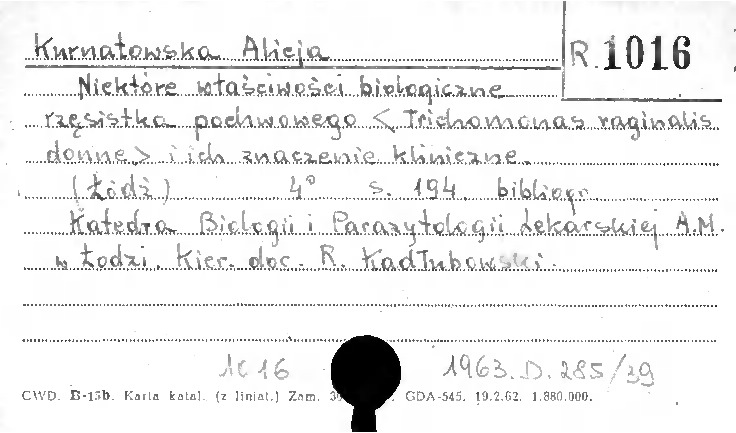 Kurnatowska Alicja
R. 1016
Niektóre właściwości biologiczne
rzęsistka pochwowego < Trichomonas vaginalis
donne > i ich znaczenie kliniczne.
(Łódź) 4° s. 194, bibliogr.
Katedra Biologii i Parazytologii Lekarskiej A.M.
w Łodzi. Kier. doc. R. Kadłubowski.
1016 1963. D. 285/39
CWD. B-15b. Karta katal. (z liniat.) Zam. GDA-545. 19.2.62. 1.880.000.